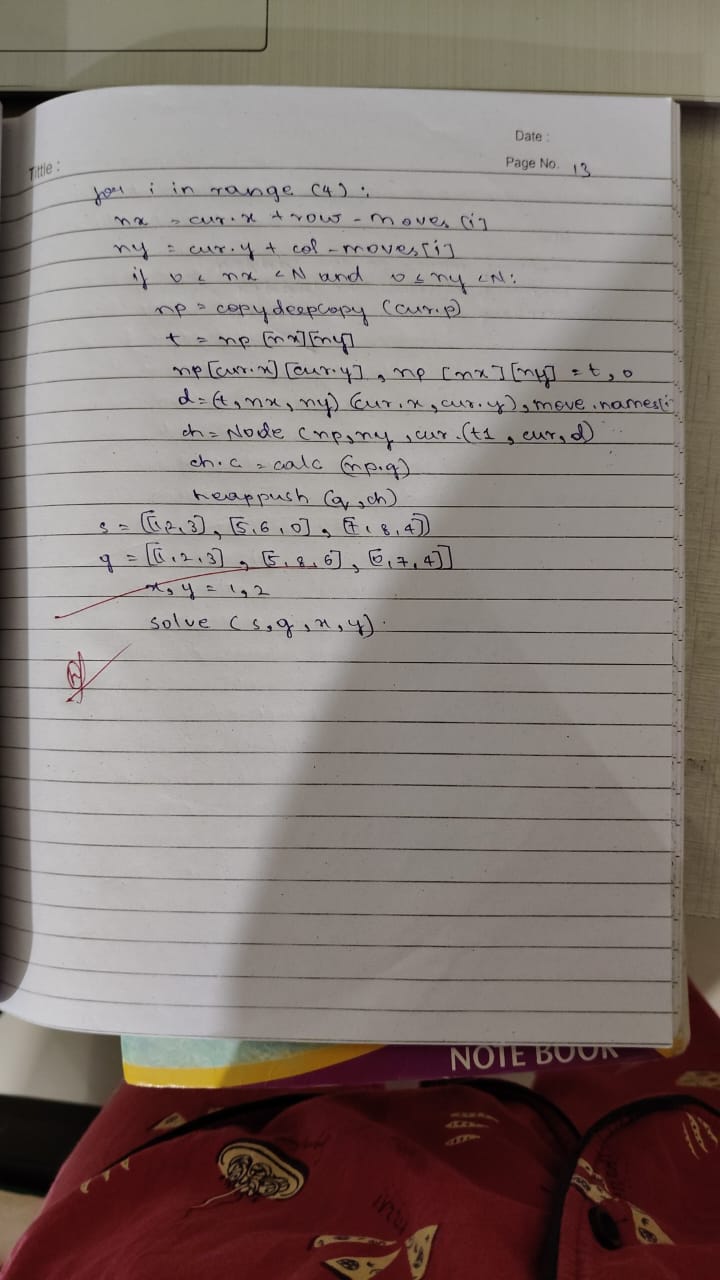 Date :
Tittle :
Page No. 13
for i in range (4) :
nx = cur.x + row - moves [i]
ny = cur.y + col - moves [i]
if 0 ≤ nx < N and 0 ≤ ny < N :
np = copy deepcopy (cur.p)
t = np [nx] [ny]
np [cur.x] [cur.y] , np [nx] [ny] = t, 0
d = (t, nx, ny) (cur.x, cur.y), move.names[i
ch = Node (np, ny, cur.(t1, cur, d)
ch.c = calc (np.g)
heappush (q, ch)
s = [[1,2,3], [5,6,0], [7,8,4]]
g = [[1,2,3], [5,8,6], [0,7,4]]
x, y = 1, 2
solve (s, g, x, y).
NOTE BOOK